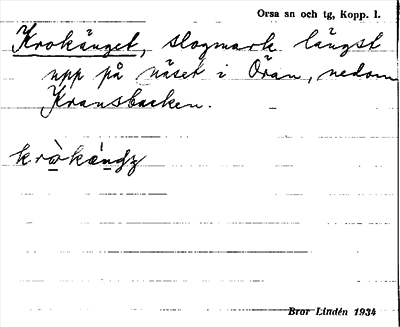 Orsa sn och tg, Kopp. l.
Krokänget, slogmark längst
upp på näset i Öran, nedom
Kransbacken.
Bror Lindén 1934